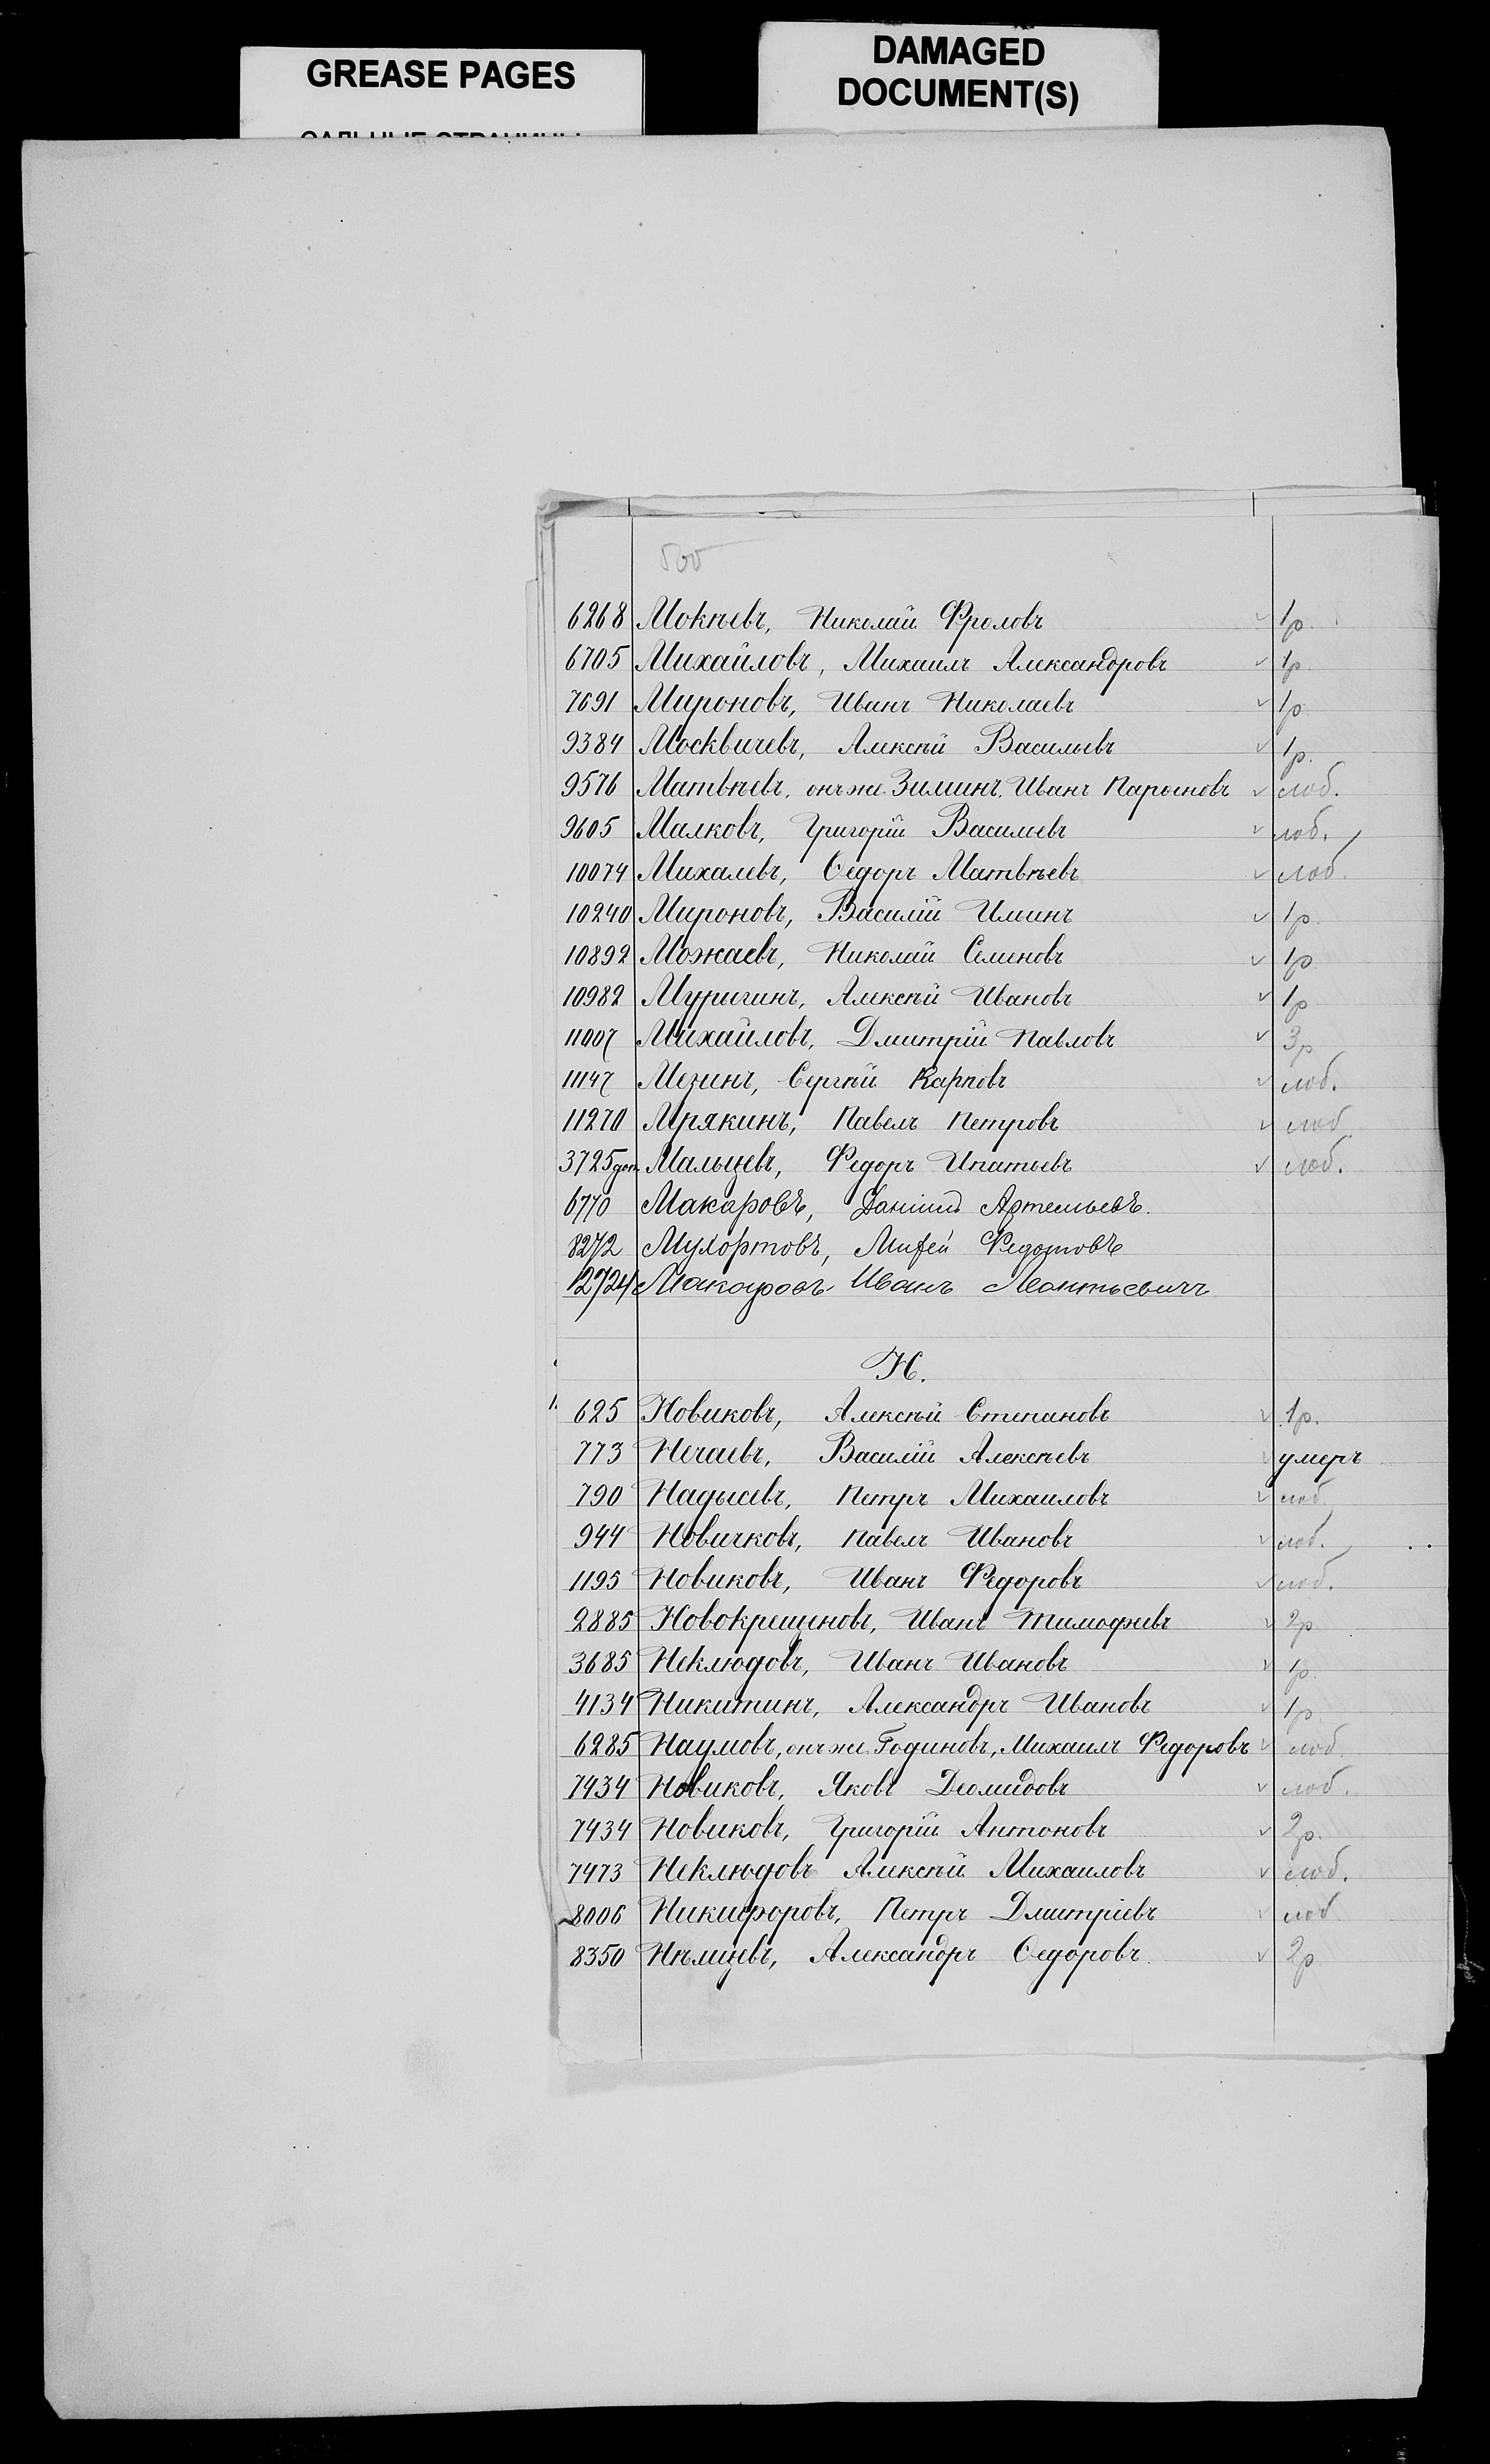 GREASE PAGES
DAMAGED
DOCUMENT(S)
6268 Мокѣевъ, Николай Фроловъ 1р.
6705 Михайловъ, Михаилъ Александровъ 1р.
7691 Мироновъ, Иванъ Николаевъ 1р.
9384 Москвичевъ, Алексѣй Васильевъ 1р.
9576 Матвѣевъ, онъ же Зиминъ, Иванъ лоб.
9605 Малковъ, Григорій Васильевъ лоб.
10074 Михалевъ, Ѳедоръ Матвѣевъ лоб.
10240 Мироновъ, Василій Ильинъ 1р.
10892 Можаевъ, Николай Семеновъ 1р.
10982 Муригинъ, Алексѣй Ивановъ 1р.
11007 Михайловъ, Дмитрій Павловъ 3р
11147 Мезинъ, Сергѣй Карповъ лоб.
11270 Мрякинъ, Павелъ Петровъ лоб.
3725 доп. Мальцевъ, Федоръ Ипатьевъ лоб.
6770 Макаровъ, Даніилъ Артемьевъ.
8272 Мухортовъ, Федотовъ
12724 Макаровъ Иванъ Леонтьевичъ
Н.
625 Новиковъ, Алексѣй Степановъ 1р.
773 Нечаевъ, Василій Алексѣевъ умеръ
790 Надысевъ, Петръ Михаиловъ лоб.
944 Новичковъ, Павелъ Ивановъ лоб.
1195 Новиковъ, Иванъ Федоровъ лоб.
2885 Новокрещеновъ, Иванъ Тимофеевъ 2р
3685 Неклюдовъ, Иванъ Ивановъ 1р.
4134 Никитинъ, Александръ Ивановъ 1р
6285 Наумовъ, онъ же Годиновъ, Михаилъ Федоровъ лоб.
7434 Новиковъ, Яковъ Деомидовъ лоб.
7434 Новиковъ, Григорій Антоновъ 2р.
7473 Неклюдовъ Алексѣй Михаиловъ лоб.
8006 Никифоровъ, Петръ Дмитріевъ лоб.
8350 Нѣмцевъ, Александръ Ѳедоровъ. 2р